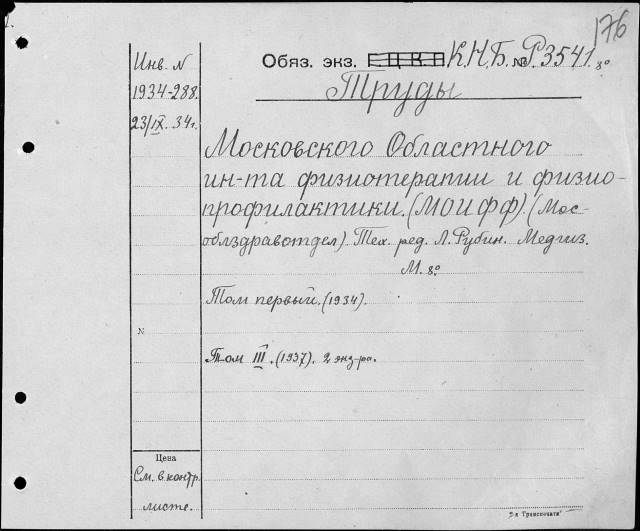 176
Инв. N
1934-288.
23/IX.34г.
Обяз. экз. ЕЦКП К.Н.Б. № Р3541. 8º
Труды
Московского Областного
ин-та физиотерапии и физио-
профилактики. (МОИФФ) (Мос-
облздравотдел). Тех. ред. Л. Рубин. Медгиз.
М. 8º
Том первый. (1934).
N
Том III. (1937). 2 экз-ра.
Цена
См. в контр.
листе.